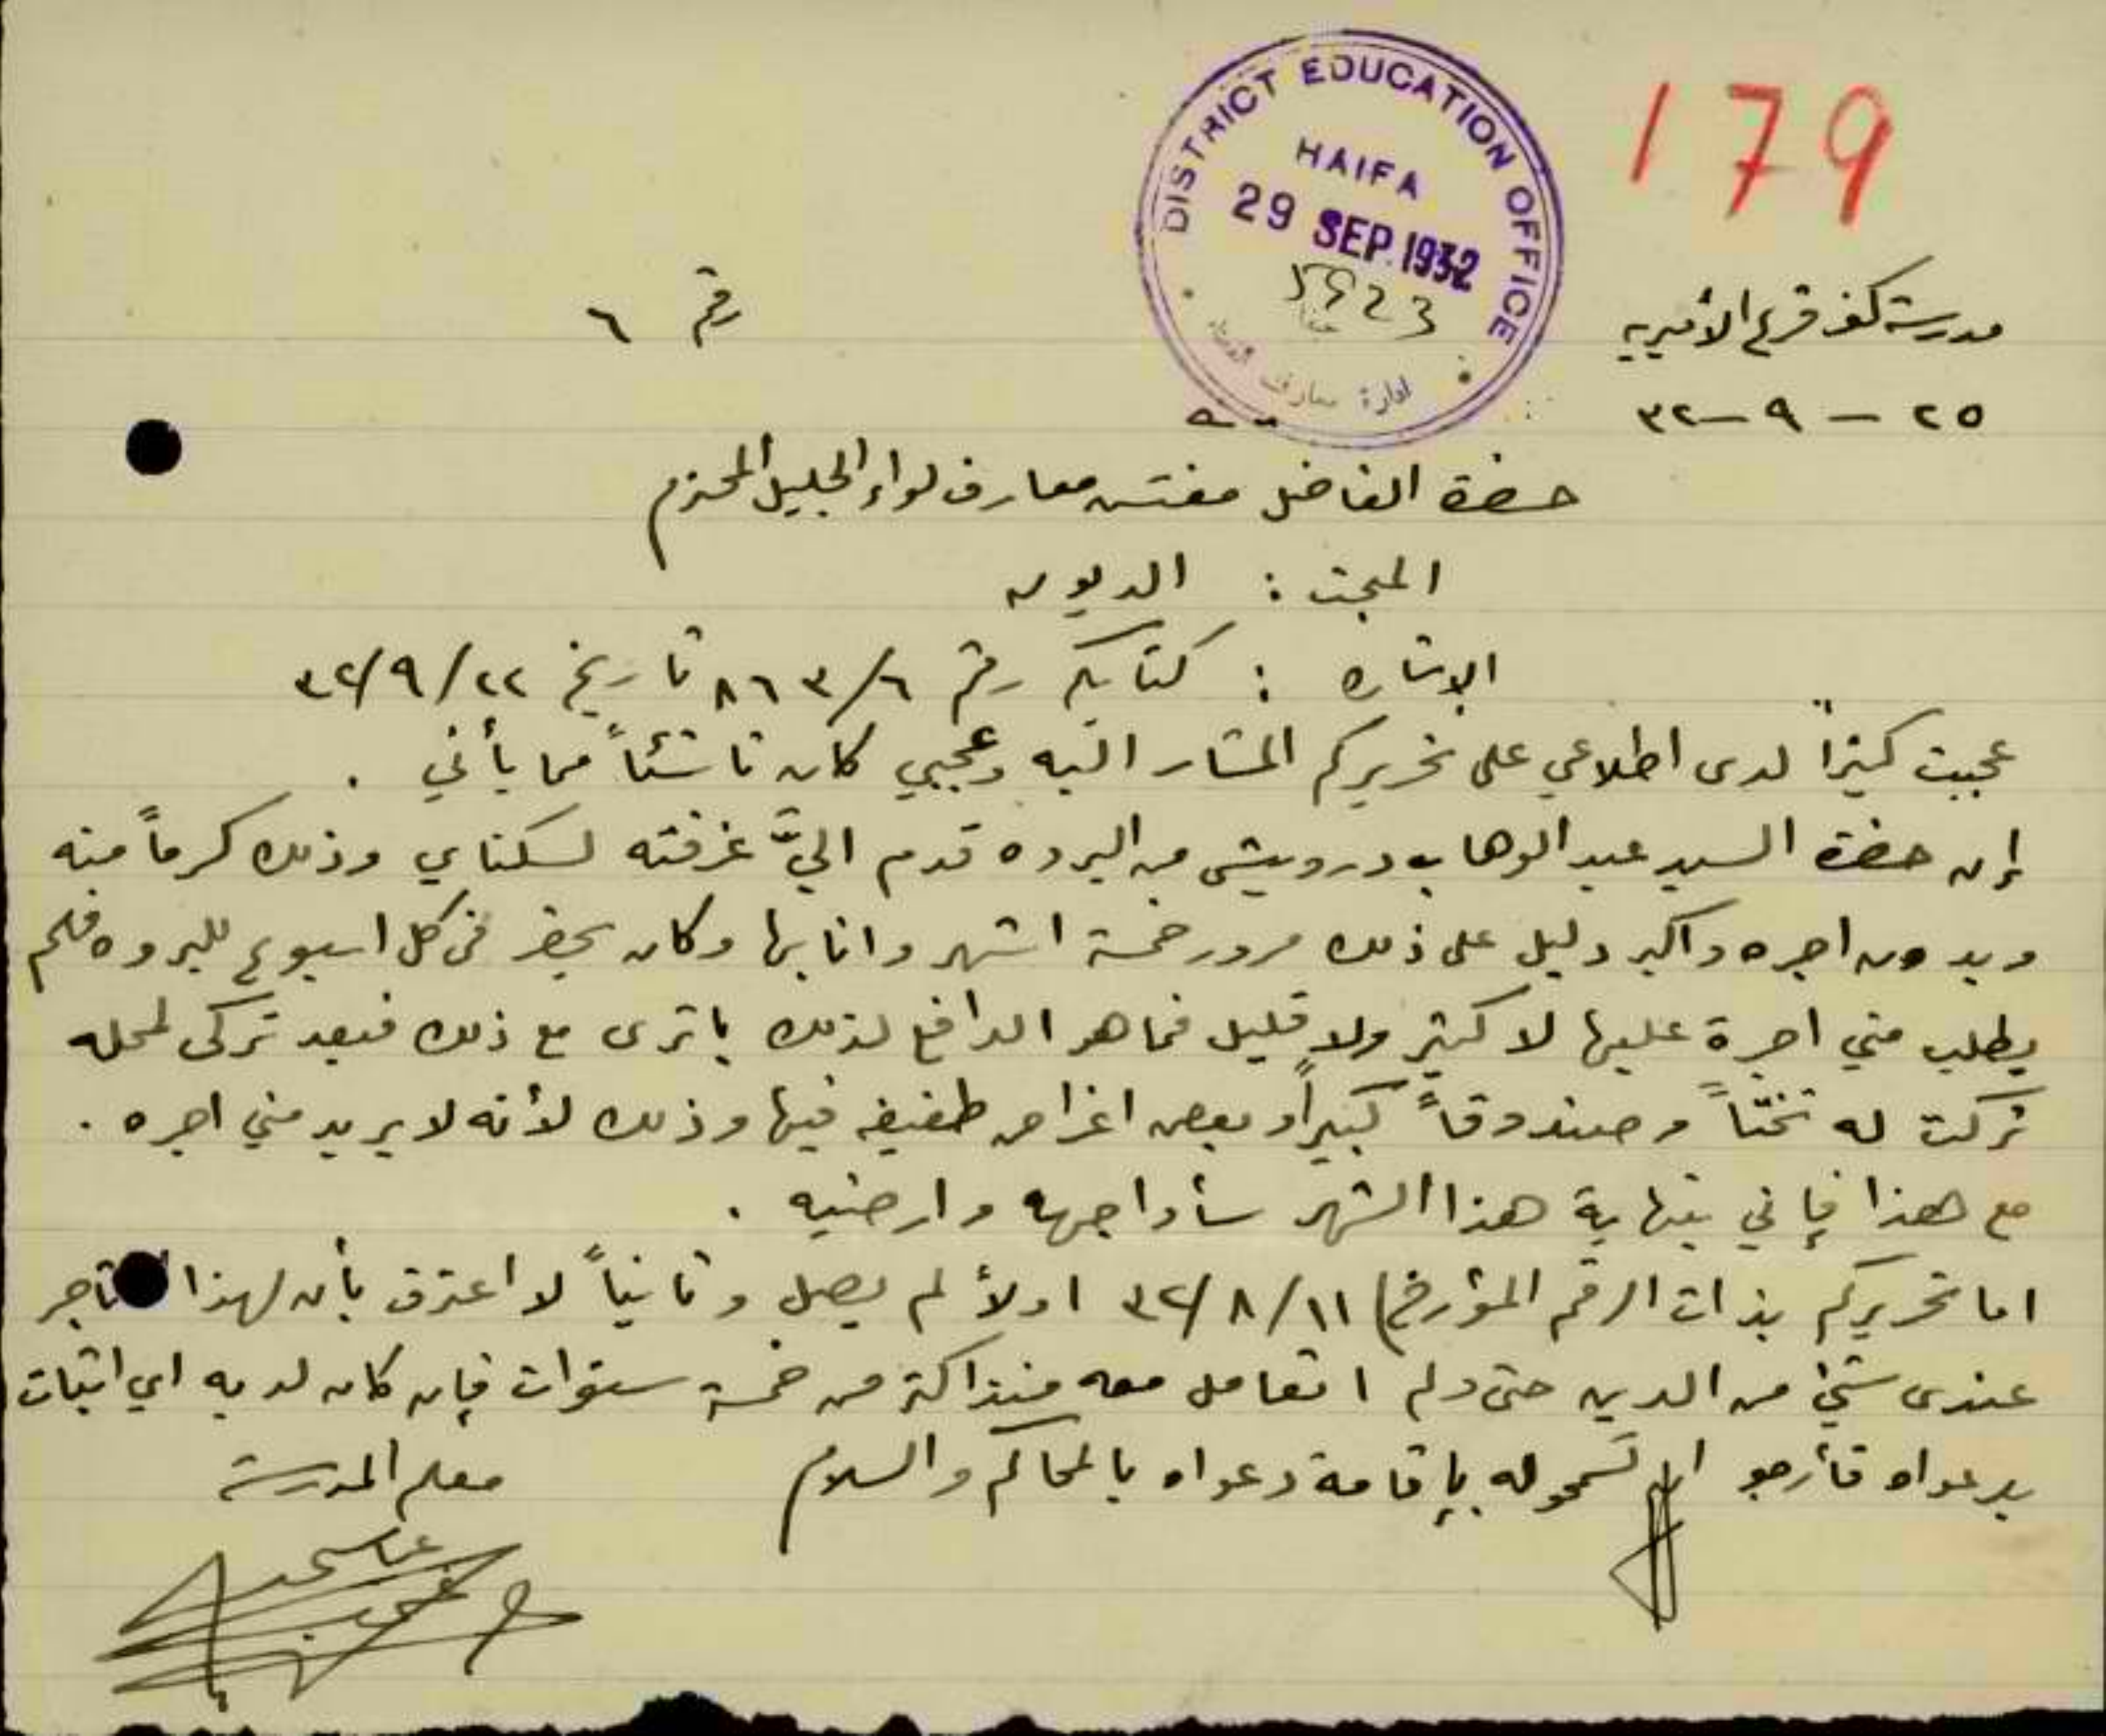 179
DISTRICT EDUCATION OFFICE
HAIFA
29 SEP. 1932
5923
ادارة معارف
مدرسة كفر قرع الأميريه
رقم ٦
٢٥ - ٩ - ٣٢
حضرة الفاضل مفتش معارف لواء الجليل المحترم
المبحث : الديون
الاشاره : كتابكم رقم ٨٦٣/٦ تاريخ ٣٢/٩/٢٢
عجبت كثيراً لدى اطلاعي على تحريركم المشار اليه وعجبي كان ناشئاً مما يأتي .
إن حضرة السيد عبد الوهاب درويش من البروه قدم اليَّ غرفته لسكناي وذلك كرماً منه
وبدون اجره واكبر دليل على ذلك مرور خمسة اشهر وانا بها وكان يحضر في كل اسبوع للبروه فلم
يطلب مني اجرة عليها لا كثير ولا قليل فما هو الدافع لذلك يا ترى مع ذلك فبعد تركي لمحله
تركت له تختاً وصندوقاً كبيراً وبعض اغراض طفيفه فيها وذلك لأنه لا يريد مني اجره .
مع هذا فإني بنهاية هذا الشهر سأواجهه وارضيه .
اما تحريركم بذات الرقم المؤرخ ٣٢/٨/١١ اولاً لم يصل وثانياً لا اعترف بأن لهذا التاجر
عندي شيء من الدين حتى ولم اتعامل معه منذ اكثر من خمسة سنوات فإن كان لديه اي اثبات
بدعواه فأرجو ان تسمحوا له بإقامة دعواه بالمحاكم والسلام
معلم المدرسة